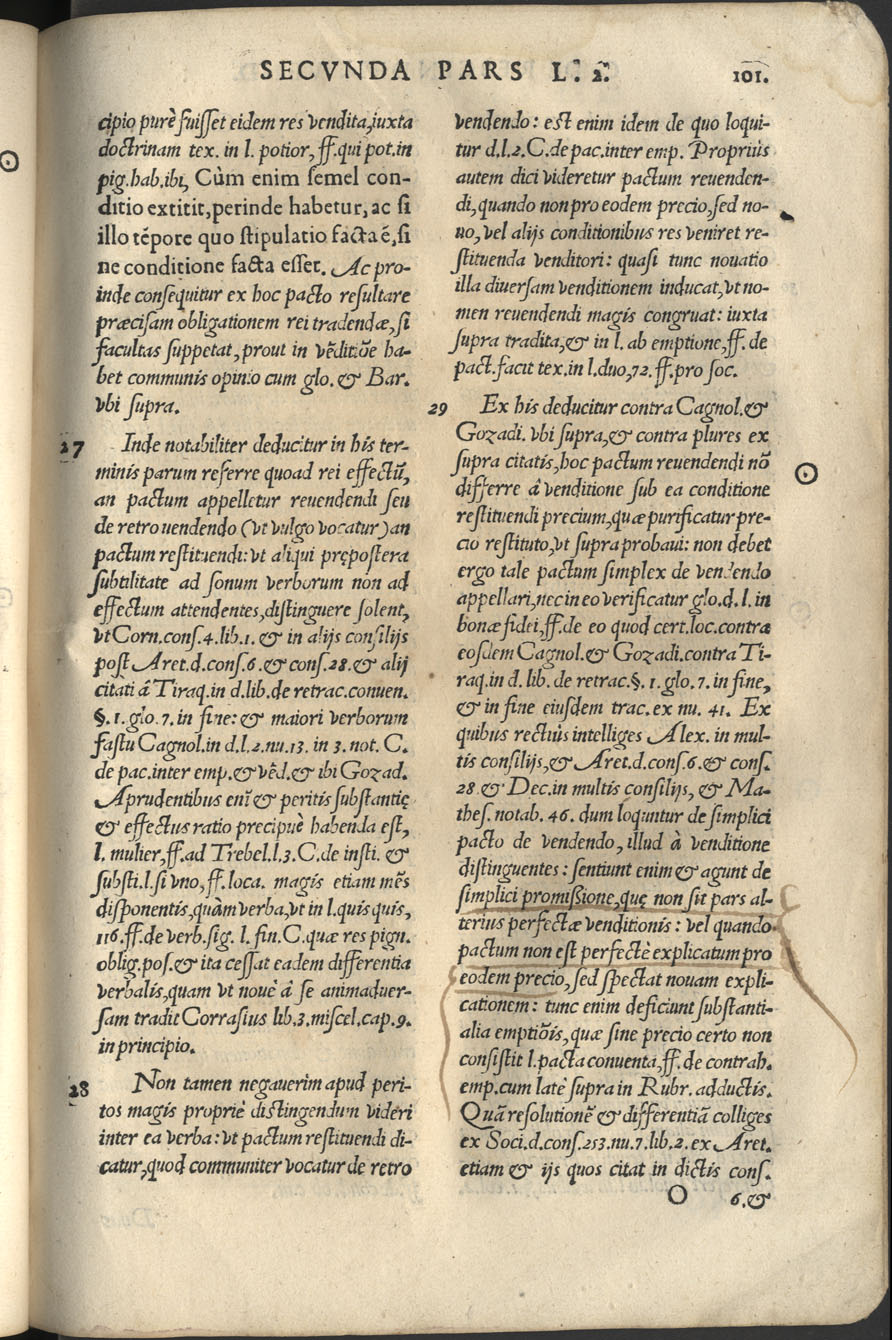 SECVNDA PARS L. 2. 101.
cipio purè fuisset eidem res vendita, iuxta
doctrinam tex. in l. potior, ff. qui pot. in
pig. hab. ibi, Cùm enim semel con-
ditio extitit, perinde habetur, ac si
illo tẽpore quo stipulatio facta ẽ, si
ne conditione facta esset. Ac pro-
inde consequitur ex hoc pacto resultare
præcisam obligationem rei tradendæ, si
facultas suppetat, prout in vẽditiõe ha-
bet communis opinio cum glo. & Bar.
vbi supra.
27 Inde notabiliter deducitur in his ter-
minis parum referre quoad rei effectũ,
an pactum appelletur reuendendi seu
de retro uendendo (vt vulgo vocatur) an
pactum restituendi: vt aliqui prępostera
subtilitate ad sonum verborum non ad
effectum attendentes, distinguere solent,
vt Corn. cons. 4. lib. 1. & in alijs consilijs
post Aret. d. cons. 6. & cons. 28. & alij
citati â Tiraq. in d. lib. de retrac. conuen.
§. 1. glo. 7. in fine: & maiori verborum
fastu Cagnol. in d. l. 2. nu. 13. in 3. not. C.
de pac. inter emp. & vẽd. & ibi Gozad.
A prudentibus enĩ & peritis substantię
& effectus ratio precipuè habenda est,
l. mulier, ff. ad Trebel. l. 3. C. de insti. &
substi. l. si vno, ff. loca. magis etiam mẽs
disponentis, quàm verba, vt in l. quis quis,
116. ff. de verb. sig. l. fin. C. quæ res pign.
oblig. pos. & ita cessat eadem differentia
verbalis, quam vt nouè â se animaduer-
sam tradit Corrasius lib. 3. miscel. cap. 9.
in principio.
28 Non tamen negauerim apud peri-
tos magis propriè distingendum videri
inter ea verba: vt pactum restituendi di-
catur, quod communiter vocatur de retro
vendendo: est enim idem de quo loqui-
tur d. l. 2. C. de pac. inter emp. Propriùs
autem dici videretur pactum reuenden-
di, quando non pro eodem precio, sed no-
uo, vel alijs conditionibus res veniret re-
stituenda venditori: quasi tunc nouatio
illa diuersam venditionem inducat, vt no-
men reuendendi magis congruat: iuxta
supra tradita, & in l. ab emptione, ff. de
pact. facit tex. in l. duo, 72. ff. pro soc.
29 Ex his deducitur contra Cagnol. &
Gozadi. vbi supra, & contra plures ex
supra citatis, hoc pactum reuendendi nõ
differre â venditione sub ea conditione
restituendi precium, quæ purificatur pre-
cio restituto, vt supra probaui: non debet
ergo tale pactum simplex de vendendo
appellari, nec in eo verificatur glo. d. l. in
bonæ fidei, ff. de eo quod cert. loc. contra
eosdem Cagnol. & Gozadi. contra Ti-
raq. in d. lib. de retrac. §. 1. glo. 7. in fine,
& in fine eiusdem trac. ex nu. 41. Ex
quibus rectiùs intelliges Alex. in mul-
tis consilijs, & Aret. d. cons. 6. & cons.
28. & Dec. in multis consilijs, & Ma-
thes. notab. 46. dum loquntur de simplici
pacto de vendendo, illud à venditione
distinguentes: sentiunt enim & agunt de
simplici promissione, quę non sit pars al-
terius perfectæ venditionis: vel quando
pactum non est perfectè explicatum pro
eodem precio, sed spectat nouam expli-
cationem: tunc enim deficiunt substanti-
alia emptiõis, quæ sine precio certo non
consistit l. pacta conuenta, ff. de contrah.
emp. cum latè supra in Rubr. adductis.
Quã resolutionẽ & differentiã colliges
ex Soci. d. cons. 253. nu. 7. lib. 2. ex Aret.
etiam & ijs quos citat in dictis cons.
O 6. &